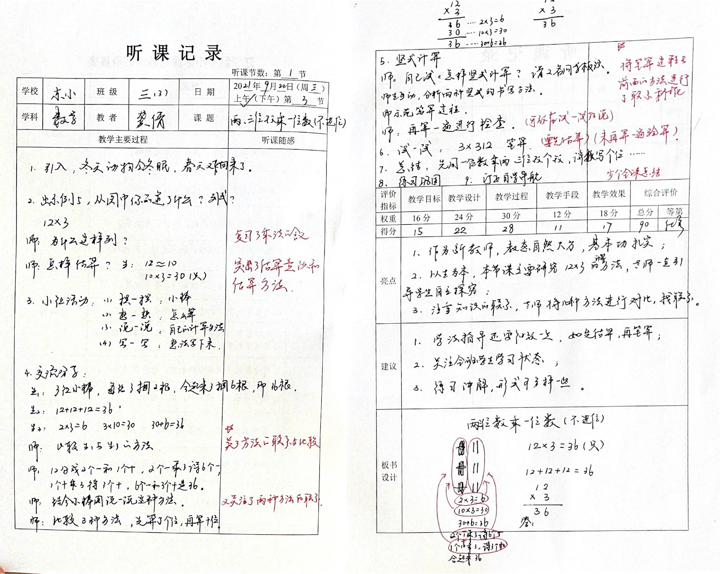 听课记录
听课节数：第1节
学校 班级 三(3) 日期 2021年9月30日(周三)
上午(下午)第3节
学科 数学 教者 课题 两、三位数乘一位数(不进位)
教学主要过程 听课随感
1. 引入，冬天动物会冬眠，春天又回来了。
2. 出示例5，从图中你知道了什么？列式？
12×3
师：为什么这样列？ 复习了乘法的含义
师：怎样估算？ 生：12≈10 突出了估算意识和
10×3=30(只) 估算方法.
3. 小组活动：
(1) 摆一摆：小棒
(2) 想一想：怎么算
(3) 说一说：自己的计算方法
(4) 写一写：想法写下来.
4. 交流分享：
12+12+12=36
2×3=6 3×10=30 30+6=36
师：比较生1与生2方法 关注方法的联系与比较
师：12分成2个一和1个十，2个一乘3得6个一，
1个十乘3得3个十，6个一和3个十是36.
师：结合小棒图说一说这种方法. 又关注了两种方法的联系
师：比较两种方法，先算个位，再算十位
12
× 3
36 …… 2×3=6
30 …… 10×3=30
36 …… 30+6=36
12
× 3
36
5. 竖式计算
师：自己试试怎样竖式计算？请2名同学板演.
师生互动，分析两种竖式的书写方法.
师示范笔算过程.
将笔算过程与
前面的方法进行
了联系
师：再算一遍进行检查.
6. 试一试，3×312 笔算. (要先估算) (未再算一遍验算)
7. 总结，先用一位数乘两三位数个位，得数写个位……
8. 练习巩固 9.
少个全课总结
评价指标 教学目标 教学设计 教学过程 教学手段 教学效果 综合评价
权重 16分 24分 30分 12分 18分 总分 等第
得分 15 22 28 11 17 90 优秀
亮点
1. 作为新教师，教态自然大方，基本功扎实；
2. 以生为本，本节课主要讲解12×3的算法，老师一直引
导学生自主探究；
3. 注重知识的联系，老师将几种方法进行对比，找联系.
建议
1. 学法指导还要开放一点，如先估算，再笔算；
2. 关注全班学生学习状态；
3. 练习讲解，形式可多样一些.
板书设计
两位数乘一位数(不进位)
12×3=36(只)
12+12+12=36
2×3=6
10×3=30
30+6=36
12
× 3
36
答：
合起来36